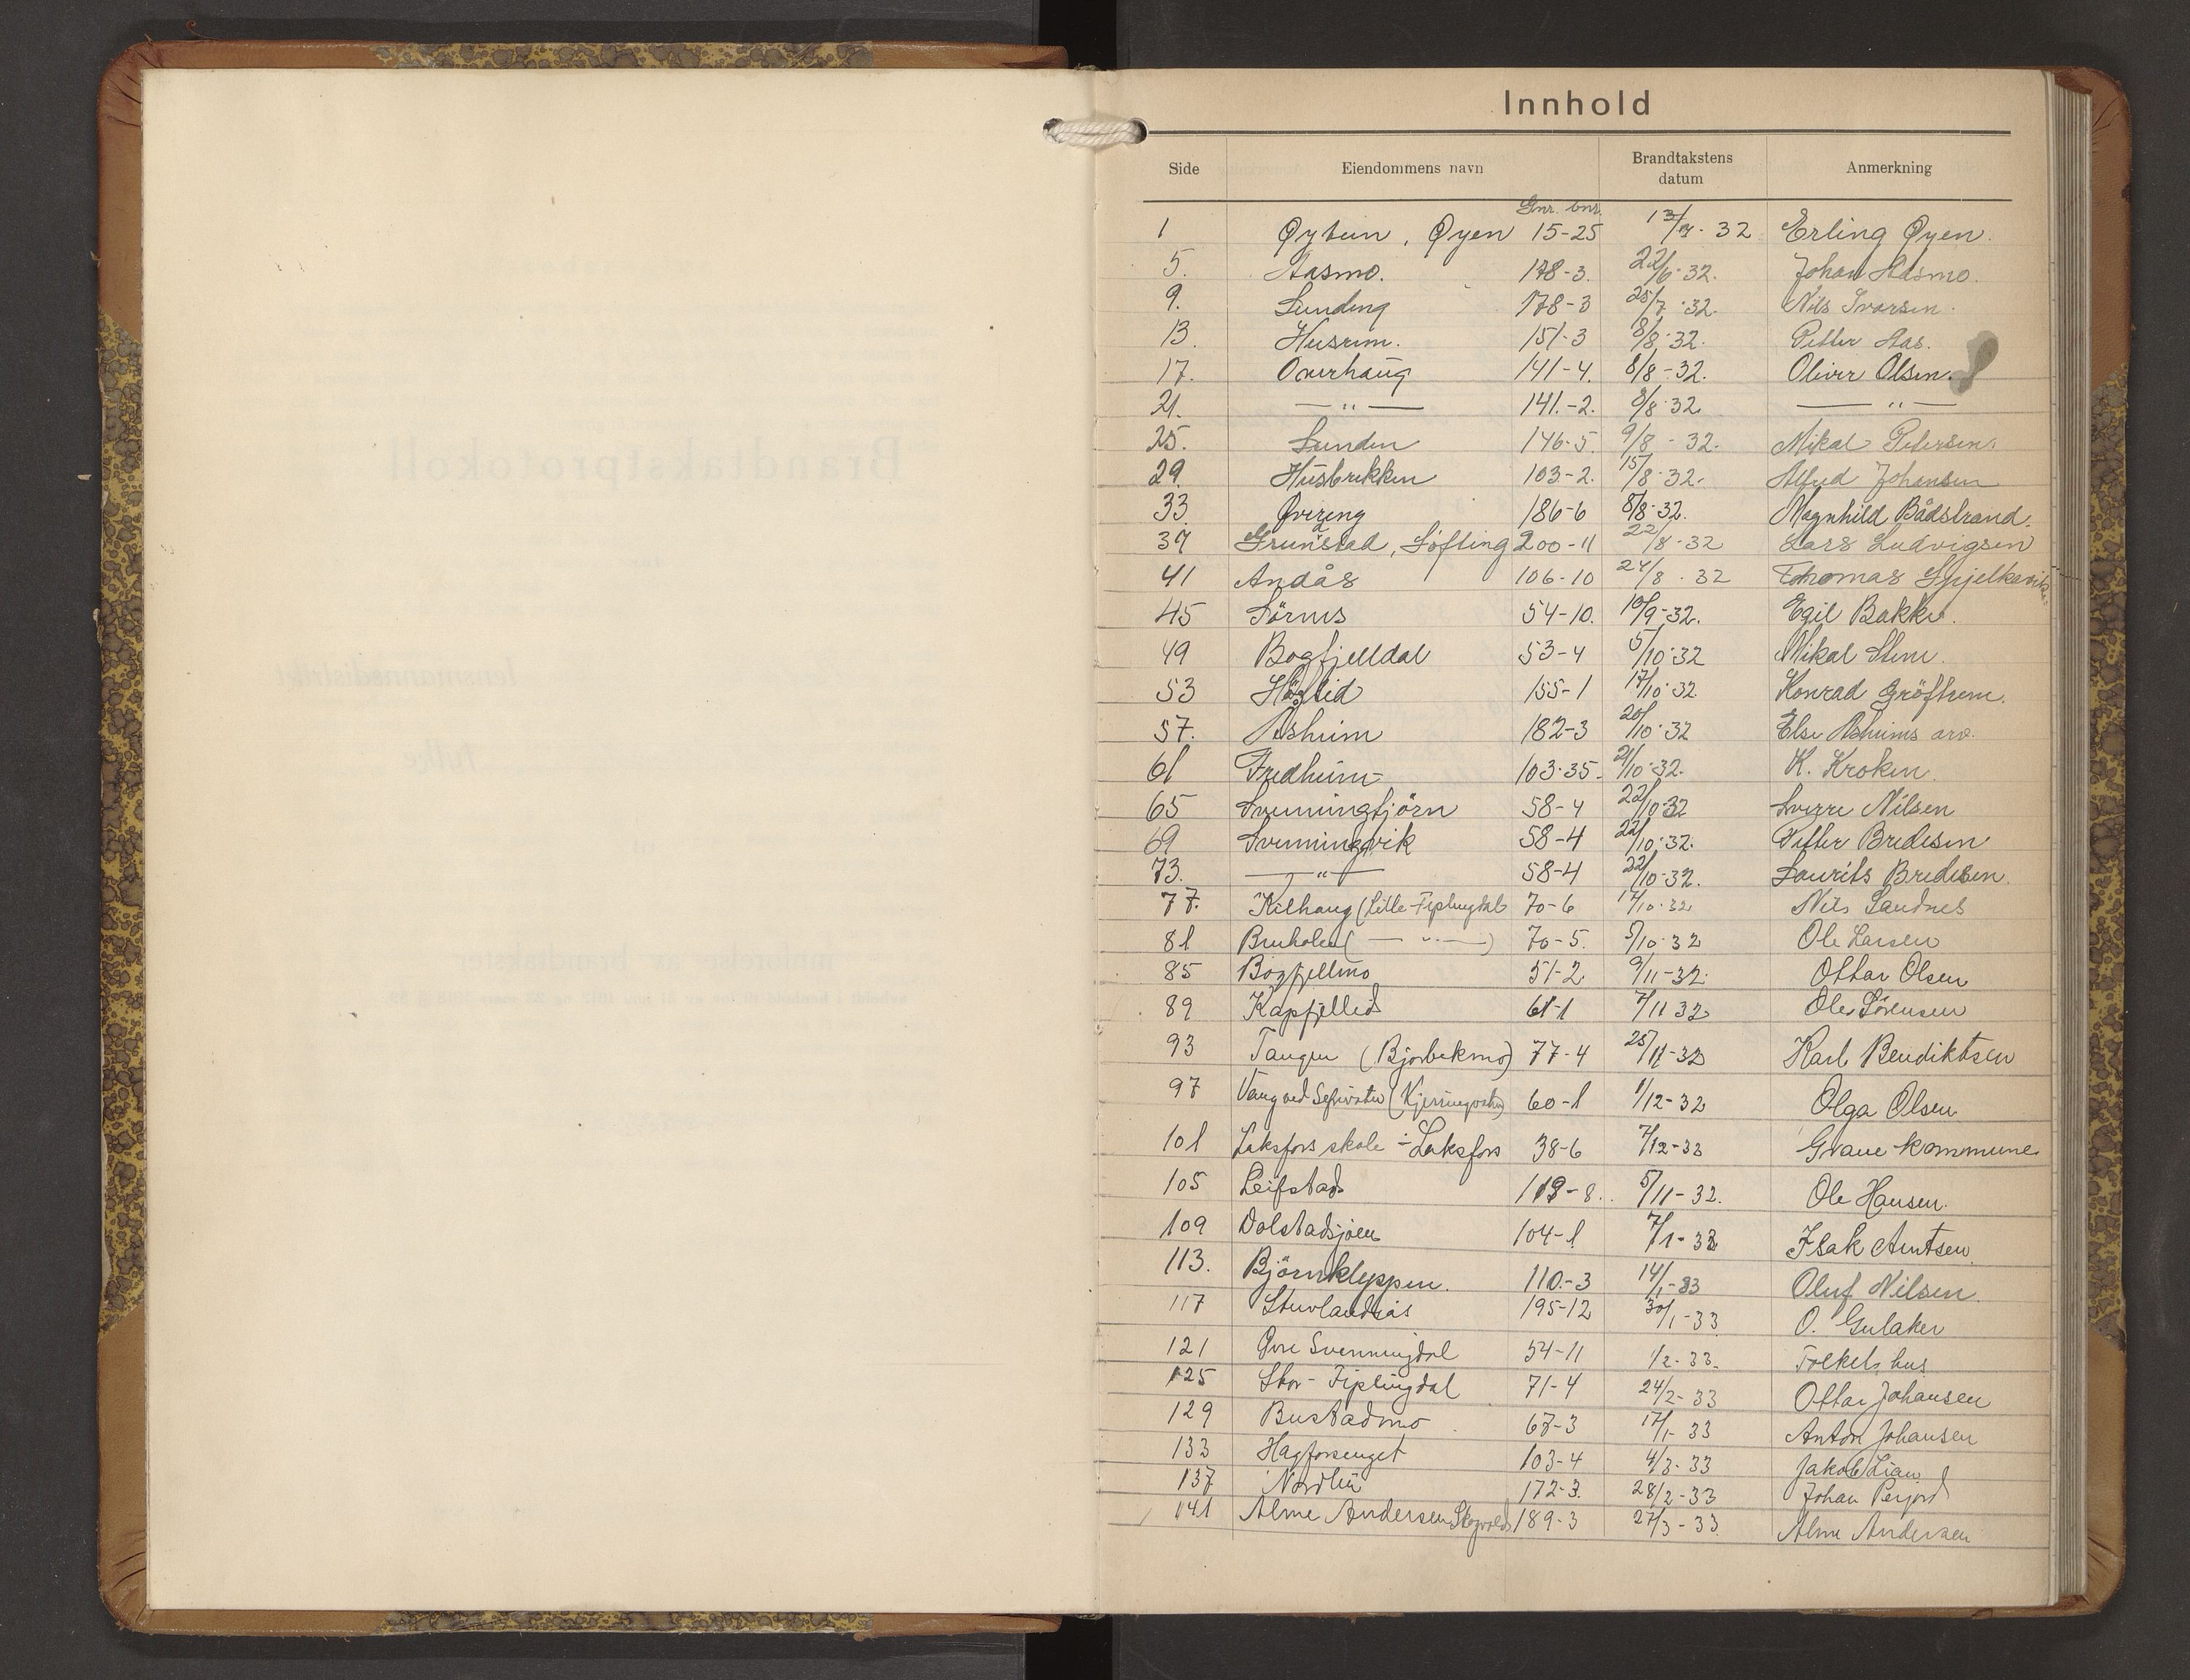 Innhold
Side Eiendommens navn Brandtakstens datum Anmerkning
Gnr. bnr.
1 Øytun, Øyen 15-25 13/7-32 Erling Øyen.
5. Aasmo. 178-3. 22/6-32. Johan Aasmo.
9. Lundeng 178-3 25/7-32. Nils Ivarsen.
13. Husrem. 151-3 8/8-32. Petter Aas.
17. Overhaug 141-4. 8/8-32. Oliver Olsen.
21. —"— 141.-2. 8/8-32 —"—
25. Lunden 146-5. 9/8-32. Mikal Petersen.
29. Husbrekken 103-2. 15/8-32. Alfred Johansen
33. Øvereng 186-6 8/8-32. Magnhild Bådstrand.
37 Grunstad, Søfting 200-11 22/8-32 Lars Ludvigsen
41 Andås 106-10 24/8-32 Thomas Skjelkavik
45 Sörnes 54-10. 19/9-32. Egil Bakke.
49 Bogfjelldal 53-4 5/10-32 Mikal Stene.
53 Höglid 155-1 17/10-32. Konrad Gröftrem.
57. Åsheim 182-3 20/10-32 Else Åsheims arv.
61 Fredheim 103-35. 21/10-32. K. Kroken.
65 Svenningtjörn 58-4 22/10-32 Sverre Nilsen
69 Svenningvik 58-4 22/10-32. Petter Bredesen
73. —"— 58-4 22/10-32. Laurits Bredesen.
77. Kilhaug (Lille-Fiplingdal 70-6 17/10-32 Nils Sandnes
81 Bruholen ( —"— ) 70-5. 5/10-32 Ole Larsen
85 Bogfjellmo 51-2 9/11-32. Ottar Olsen
89 Kapfjellid 61-1 7/11 32 Ole Sörensen
93 Tangen (Bjorbekmo) 77-4 25/11-32 Karl Bendiktsen
97 Vang ved Sefrivatn (Kjerringvatn) 60-1 1/12-32 Olga Olsen
101 Laksfors skole - Laksfors 38-6 7/12-32 Grane kommune
105 Leifstad 119-8. 5/11-32. Ole Hansen.
109 Dolstadsjøen 104-1 7/1-33 Isak Arntsen
113. Björnkleppen. 110.-3 14/1-33 Oluf Nilsen.
117 Sturlandsås 195-12 30/1-33 O. Gulaker
121 Øvre Svenningdal 54-11 1/2-33. Folkets hus
125 Stor-Fiplingdal 71-4 24/2-33 Ottar Johansen
129 Bustadmo 67-3 17/1-33 Anton Johansen
133 Hagforsenget 103-4 4/3-33 Jakob Lian
137 Nordlia 172-3. 28/2-33 Johan Perjord
141 Alme Andersen Skogvold 189-3 27/3-33 Alme Andersen